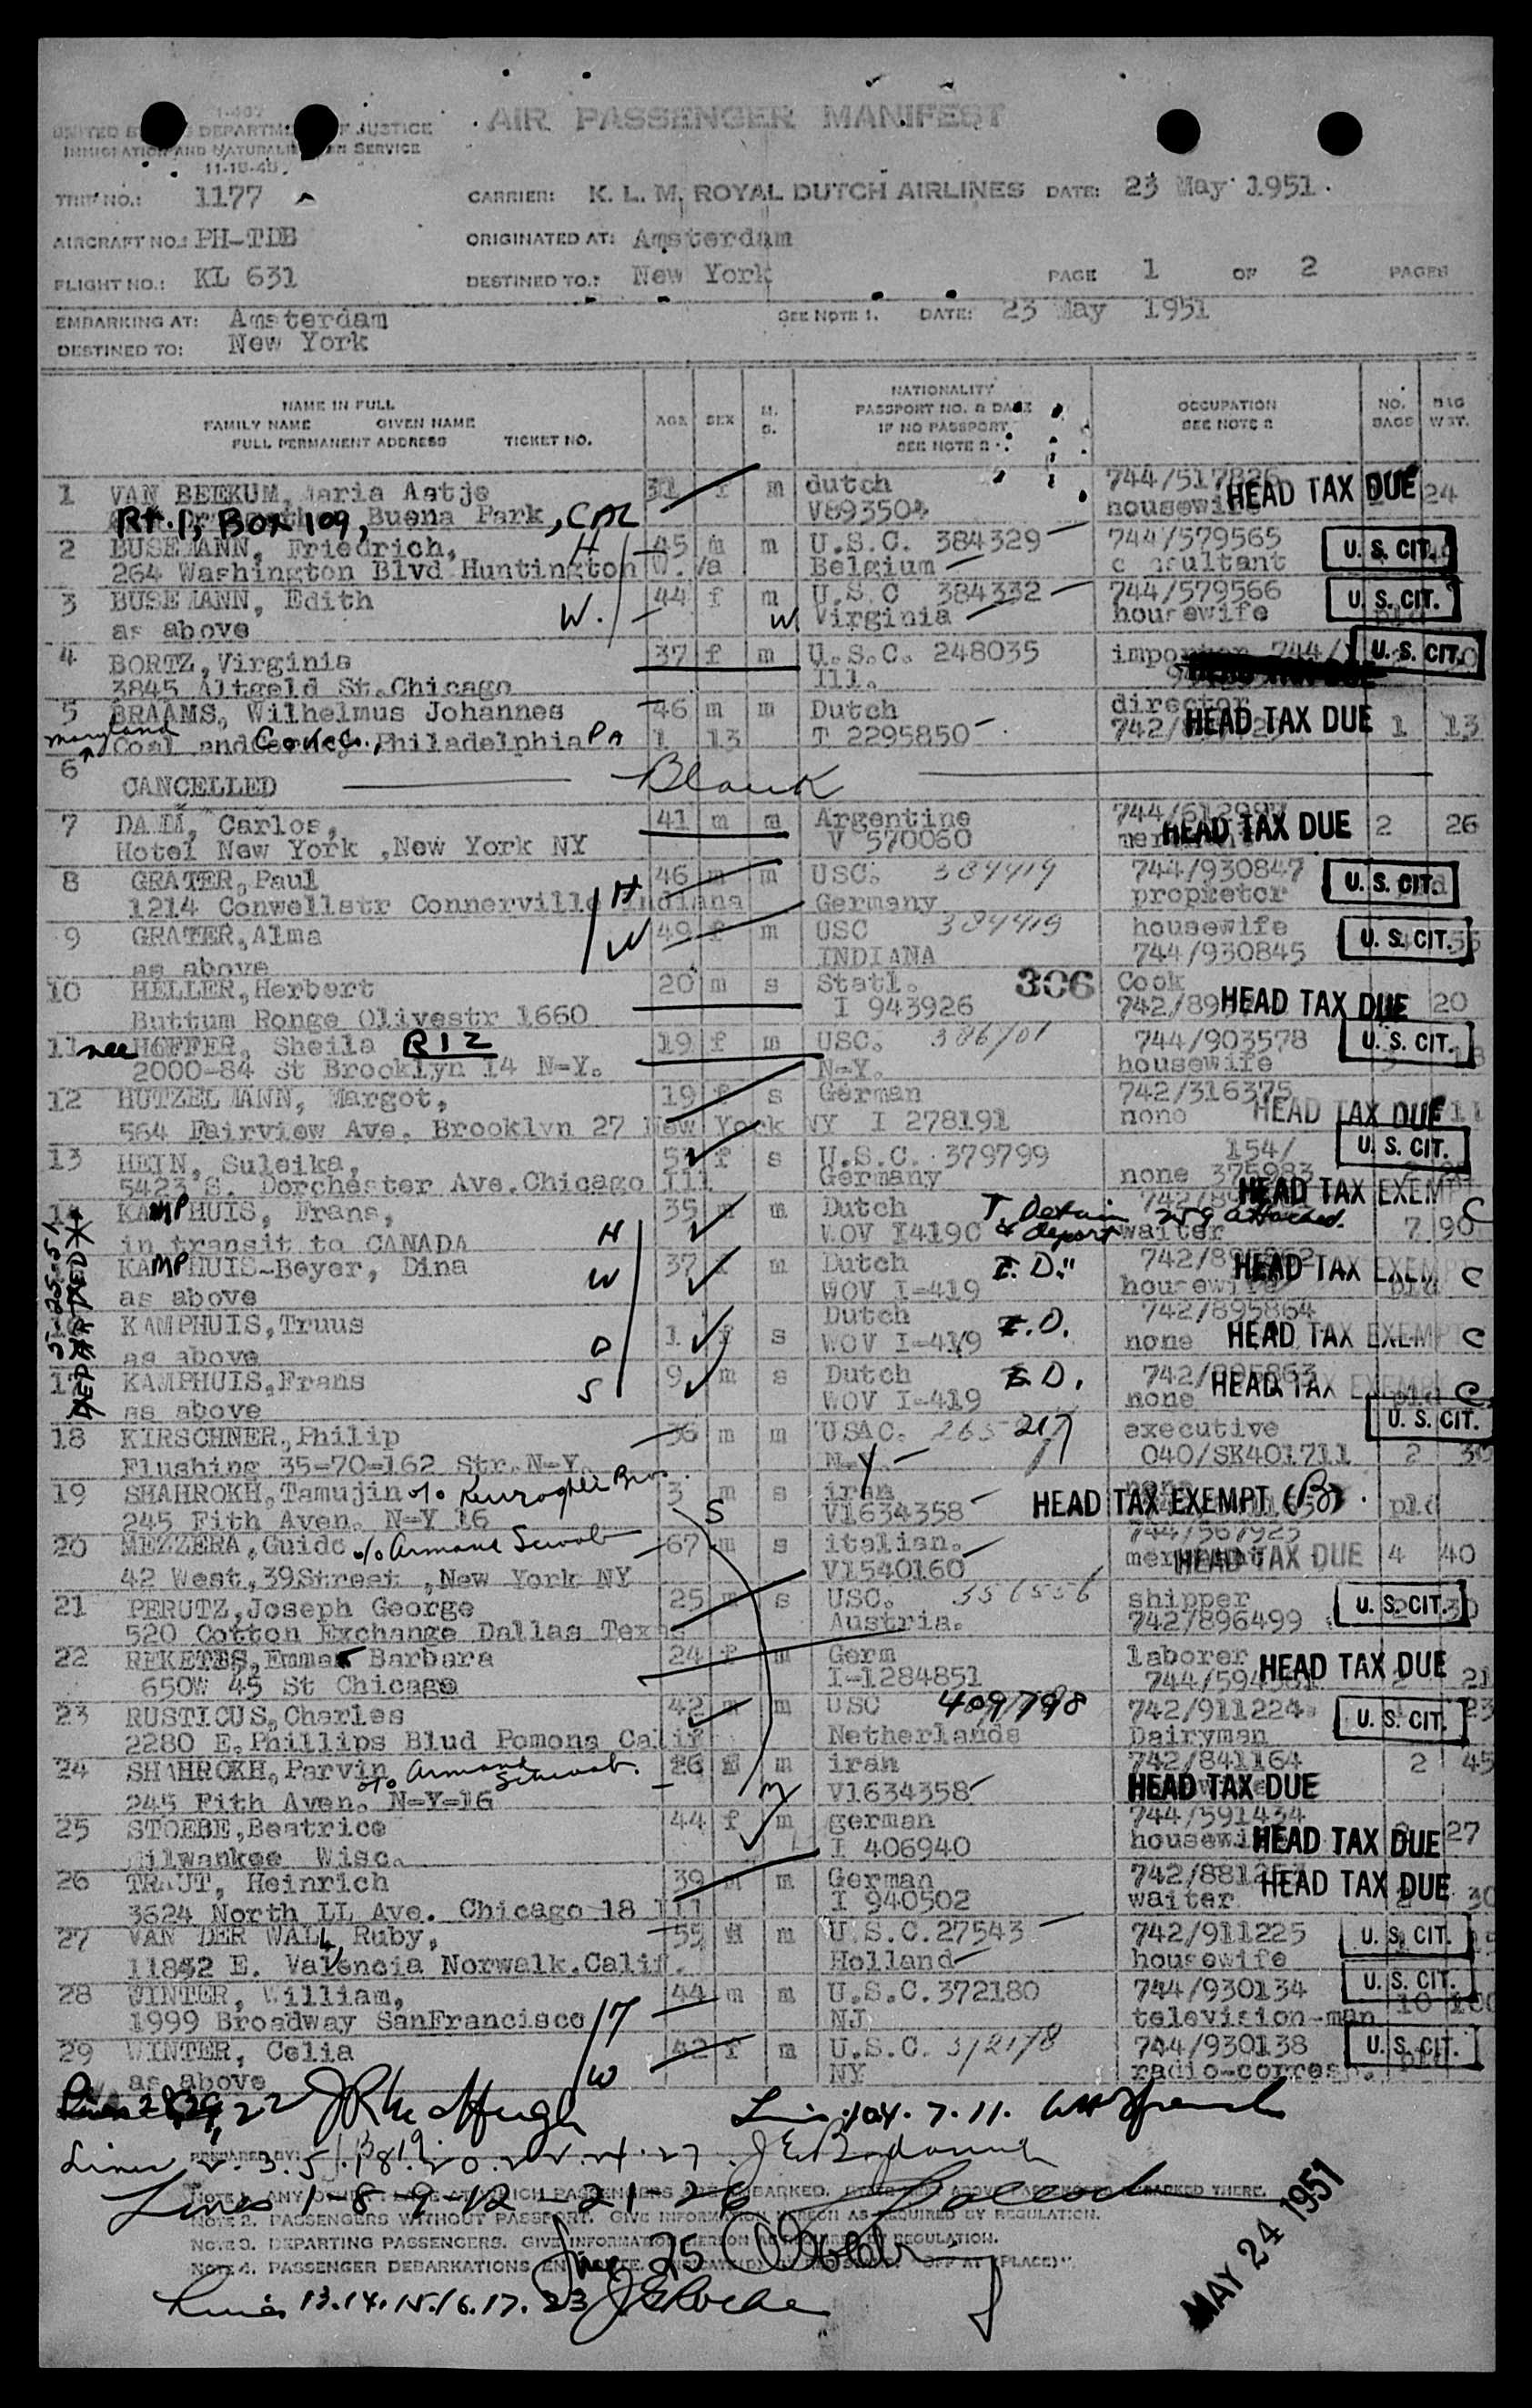 I-467
UNITED STATES DEPARTMENT OF JUSTICE
IMMIGRATION AND NATURALIZATION SERVICE
11-15-45
AIR PASSENGER MANIFEST
TRIP NO.: 1177 CARRIER: K. L. M. ROYAL DUTCH AIRLINES DATE: 23 May 1951.
AIRCRAFT NO.: PH-TDB ORIGINATED AT: Amsterdam
FLIGHT NO.: KL 631 DESTINED TO.: New York PAGE 1 OF 2 PAGES
EMBARKING AT: Amsterdam SEE NOTE 1. DATE: 23 May 1951
DESTINED TO: New York
NAME IN FULL
FAMILY NAME GIVEN NAME
FULL PERMANENT ADDRESS TICKET NO.
AGE SEX M. S.
NATIONALITY
PASSPORT NO. & DATE
IF NO PASSPORT
SEE NOTE 2
OCCUPATION
SEE NOTE 2
NO. BAGS
BAG WGT.
1 VAN BEEKUM, Maria Aatje 31 f m dutch HEAD TAX DUE 24
Rt. 1, BOX 109, Buena Park, CAL housewife
2 BUSEMANN, Friedrich, H 45 m m U.S.C. 384329 744/579565 U. S. CIT.
264 Washington Blvd Huntington W. Va Belgium consultant
3 BUSEMANN, Edith W. 44 f m U.S.C 384332 744/579566 U. S. CIT.
as above W Virginia housewife
4 BORTZ, Virginia 37 f m U.S.C. 248035 U. S. CIT.
3845 Altgeld St. Chicago Ill.
5 BRAAMS, Wilhelmus Johannes 46 m m Dutch director HEAD TAX DUE 1 13
Maryland Coal and Coke Co., Philadelphia PA 1 13 T 2295850
6 CANCELLED Blank
7 DAMM, Carlos, 41 m m Argentine HEAD TAX DUE 2 26
Hotel New York, New York NY V 570060
8 GRATER, Paul H 46 m m USC. 384419 744/930847 U. S. CIT.
1214 Conwellstr Connerville Indiana Germany propietor
9 GRATER, Alma W 49 f m USC 384419 housewife U. S. CIT.
as above INDIANA 744/930845
10 HELLER, Herbert 20 m s Statl. 306 Cook HEAD TAX DUE 20
Buttum Ronge Olivestr 1660 I 943926
11 nee HOFFER, Sheila RIZ 19 f m USC. 386701 744/903578 U. S. CIT.
2000-84 St Brooklyn 14 N-Y. N-Y. housewife
12 HUTZELMANN, Margot, 19 f s German 742/316375 HEAD TAX DUE 11
564 Fairview Ave. Brooklyn 27 New York NY I 278191 none
13 HEIN, Suleika, f s U.S.C. 379799 154/ U. S. CIT.
5423 S. Dorchester Ave. Chicago Ill Germany none 375983
14 KAMPHUIS, Frans, 35 m m Dutch T. Detain & deport 259 attached HEAD TAX EXEMPT C
in transit to CANADA H WOV I419C waiter 7 90
KAMPHUIS-Beyer, Dina W 37 f m Dutch T. D." HEAD TAX EXEMPT C
as above WOV I-419 housewife pld
KAMPHUIS, Truus D 1 f s Dutch T.D. 742/895864 HEAD TAX EXEMPT C
as above WOV I-419 none
17 KAMPHUIS, Frans S 9 m s Dutch T.D. 742/895863 HEAD TAX EXEMPT C
as above WOV I-419 none pld
DEPARTED 5-25-51
18 KIRSCHNER, Philip 36 m m USAC. 265217 executive U. S. CIT.
Flushing 35-70-162 Str. N-Y. N-Y. 040/SK401711 2 30
19 SHAHROKH, Tamujin 3 m s iran none HEAD TAX EXEMPT (B) pld
245 Fith Aven. N-Y 16 S V1634358
20 MEZZERA, Guido 67 m s italian. HEAD TAX DUE 4 40
42 West, 39Street, New York NY V1540160
21 PERUTZ, Joseph George 25 m s USC. 356556 shipper U. S. CIT. 30
520 Cotton Exchange Dallas Texas Austria. 742/896499
22 REKETES, Emma Barbara 24 f m Germ laborer HEAD TAX DUE 21
650W 45 St Chicago I-1284851
23 RUSTICUS, Charles 42 m m USC 409798 742/911224 U. S. CIT. 23
2280 E. Phillips Blud Pomona Calif Netherlands Dairyman
24 SHAHROKH, Parvin 26 m iran 742/841164 2 45
245 Fith Aven. N-Y-16 M V1634358 HEAD TAX DUE
25 STOEBE, Beatrice 44 f m german 744/591434 HEAD TAX DUE 27
Milwankee Wisc. I 406940 housewife
26 TRAUT, Heinrich 39 m m German HEAD TAX DUE 30
3624 North LL Ave. Chicago 18 Ill I 940502 waiter
27 VAN DER WALL, Ruby, 55 m U.S.C. 27543 742/911225 U. S. CIT.
11852 E. Valencia Norwalk. Calif. Holland housewife
28 WINTER, William, 44 m m U.S.C. 372180 744/930134 U. S. CIT.
1999 Broadway SanFrancisco NJ television-man 10 100
29 WINTER, Celia W 42 f m U.S.C. 372178 744/930138 U. S. CIT.
as above NY radio-corres.
Lines 1-8-9-12-21-26
PREPARED BY:
NOTE 2. PASSENGERS WITHOUT PASSPORT. GIVE INFORMATION HEREON AS REQUIRED BY REGULATION.
NOTE 3. DEPARTING PASSENGERS. GIVE INFORMATION HEREON AS REQUIRED BY REGULATION.
Line 25
NOTE 4. PASSENGER DEBARKATIONS EN ROUTE.
Lines 13.14.15.16.17.23
MAY 24 1951